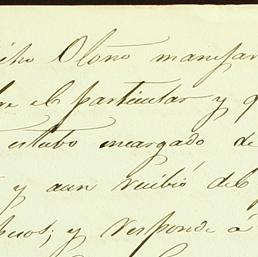 dicho Olaño manifa
re el particular y q
estubo encargado de
y aun recibió del
pesos; y responde á